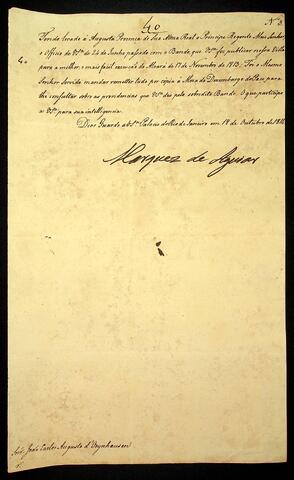 40
Nº 8
Tendo levado á Augusta Prezença de Sua Alteza Real o Principe Regente Meu Senhor
4.
o Officio de VSª de 24 de Junho passado com o Bando que VSª fez publicar nessa Villa
para a melhor e mais facil execução do Alvará de 17 de Novembro de 1813: Foi o Mesmo
Senhor Servido mandar remetter tudo por cópia á Meza do Dezembargo do Paço, para
lhe consultar sobre as providencias que VSª deo pelo sobredito Bando. O que participo
a VSª para sua intelligencia.
Deos Guarde a VSª Palacio do Rio de Janeiro em 18 de Outubro de
Marquez de Aguiar
João Carlos Augusto d'Oeynhausen